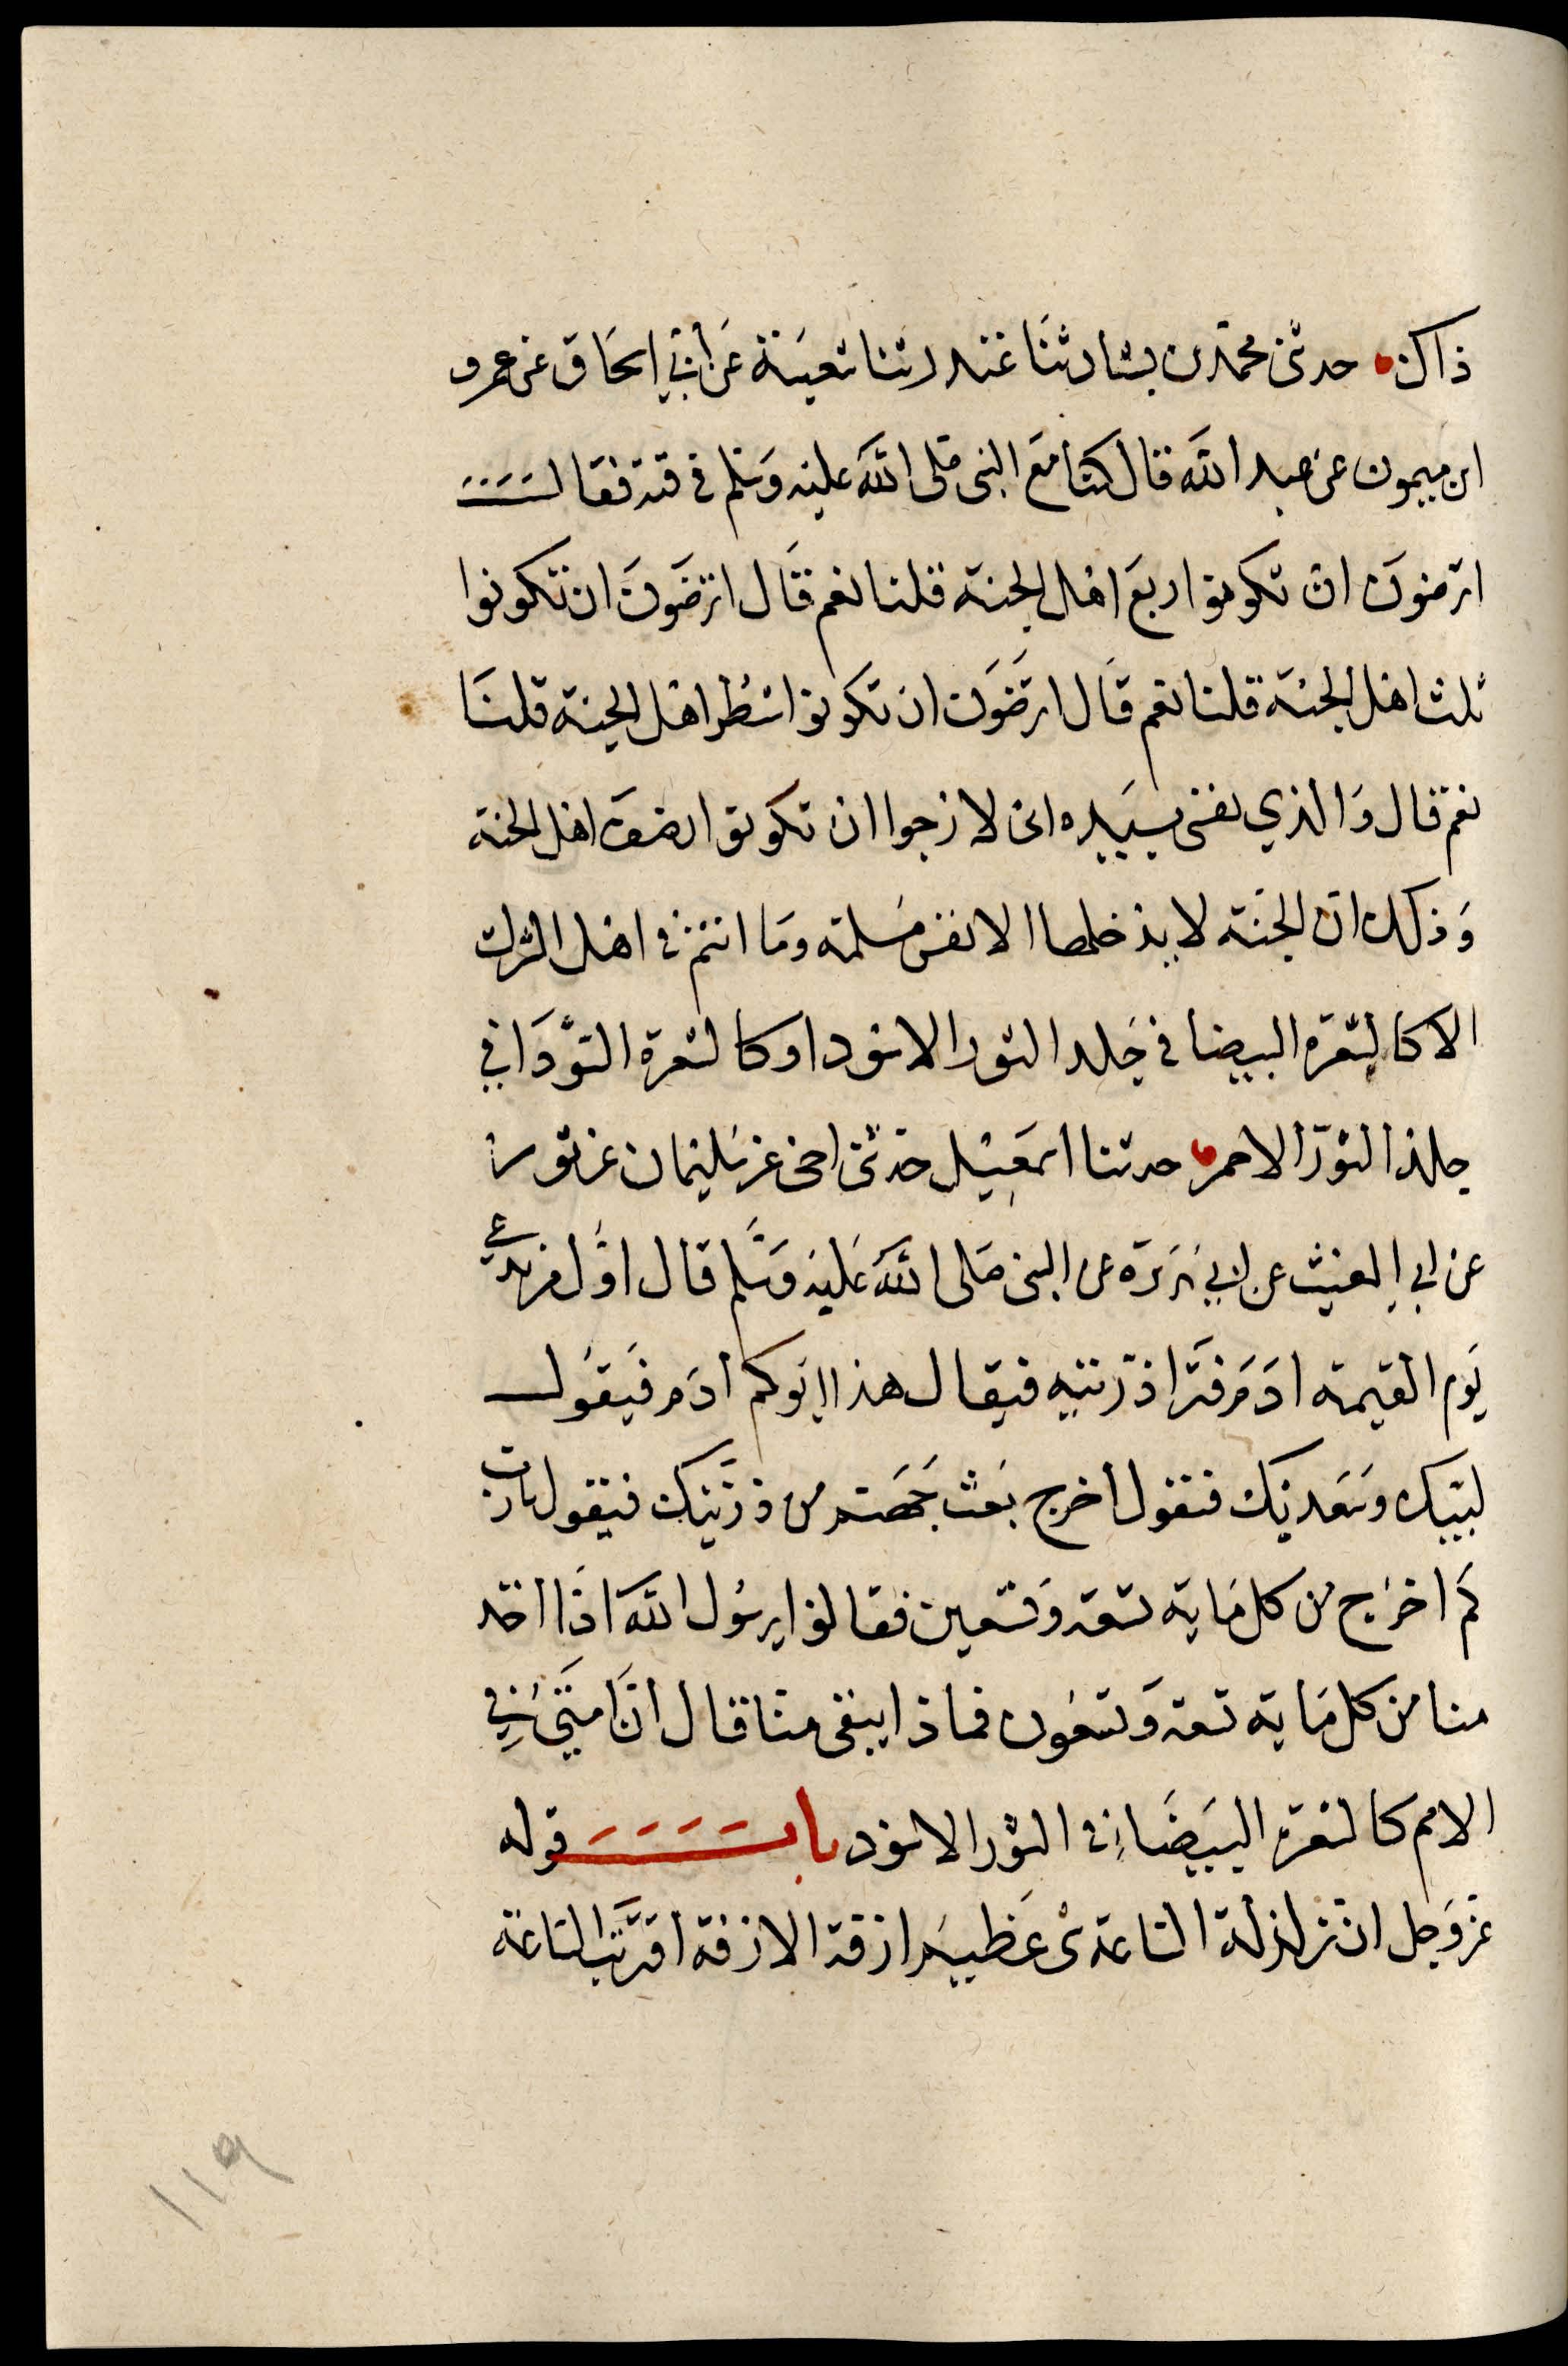 ذاك حدثني محمد بن بشار ثنا غندر ثنا شعبة عن ابي اسحاق عن عمرو
ابن ميمون عن عبد الله قال كنا مع النبي صلى الله عليه وسلم في قبة فقال
اترضون ان تكونوا ربع اهل الجنة قلنا نعم قال اترضون ان تكونوا
ثلث اهل الجنة قلنا نعم قال اترضون ان تكونوا شطر اهل الجنة قلنا
نعم قال والذي نفسي بيده اني لارجوا ان تكونوا نصف اهل الجنة
وذلك ان الجنة لا يدخلها الا نفس مسلمة وما انتم في اهل الشرك
الا كالشعرة البيضا في جلد الثور الاسود او كالشعرة السودا في
جلد الثور الاحمر حدثنا اسمعيل حدثني اخي عن سليمان عن ثور
عن ابي الغيث عن ابي هريرة عن النبي صلى الله عليه وسلم قال اول من يدعى
يوم القيمة ادم فترا ذريته فيقال هذا ابوكم ادم فيقول
لبيك وسعديك فيقول اخرج بعث جهنم من ذريتك فيقول يارب
كم اخرج من كل ماية تسعة وتسعين فقالوا يرسول الله اذا اخذ
منا من كل ماية تسعة وتسعون فماذا يبقى منا قال ان امتي في
الامم كالشعرة البيضا في الثور الاسود باب قوله
عز وجل ان زلزلة الساعة شى عظيم ازفة الازفة اقتربت الساعة
١١٩